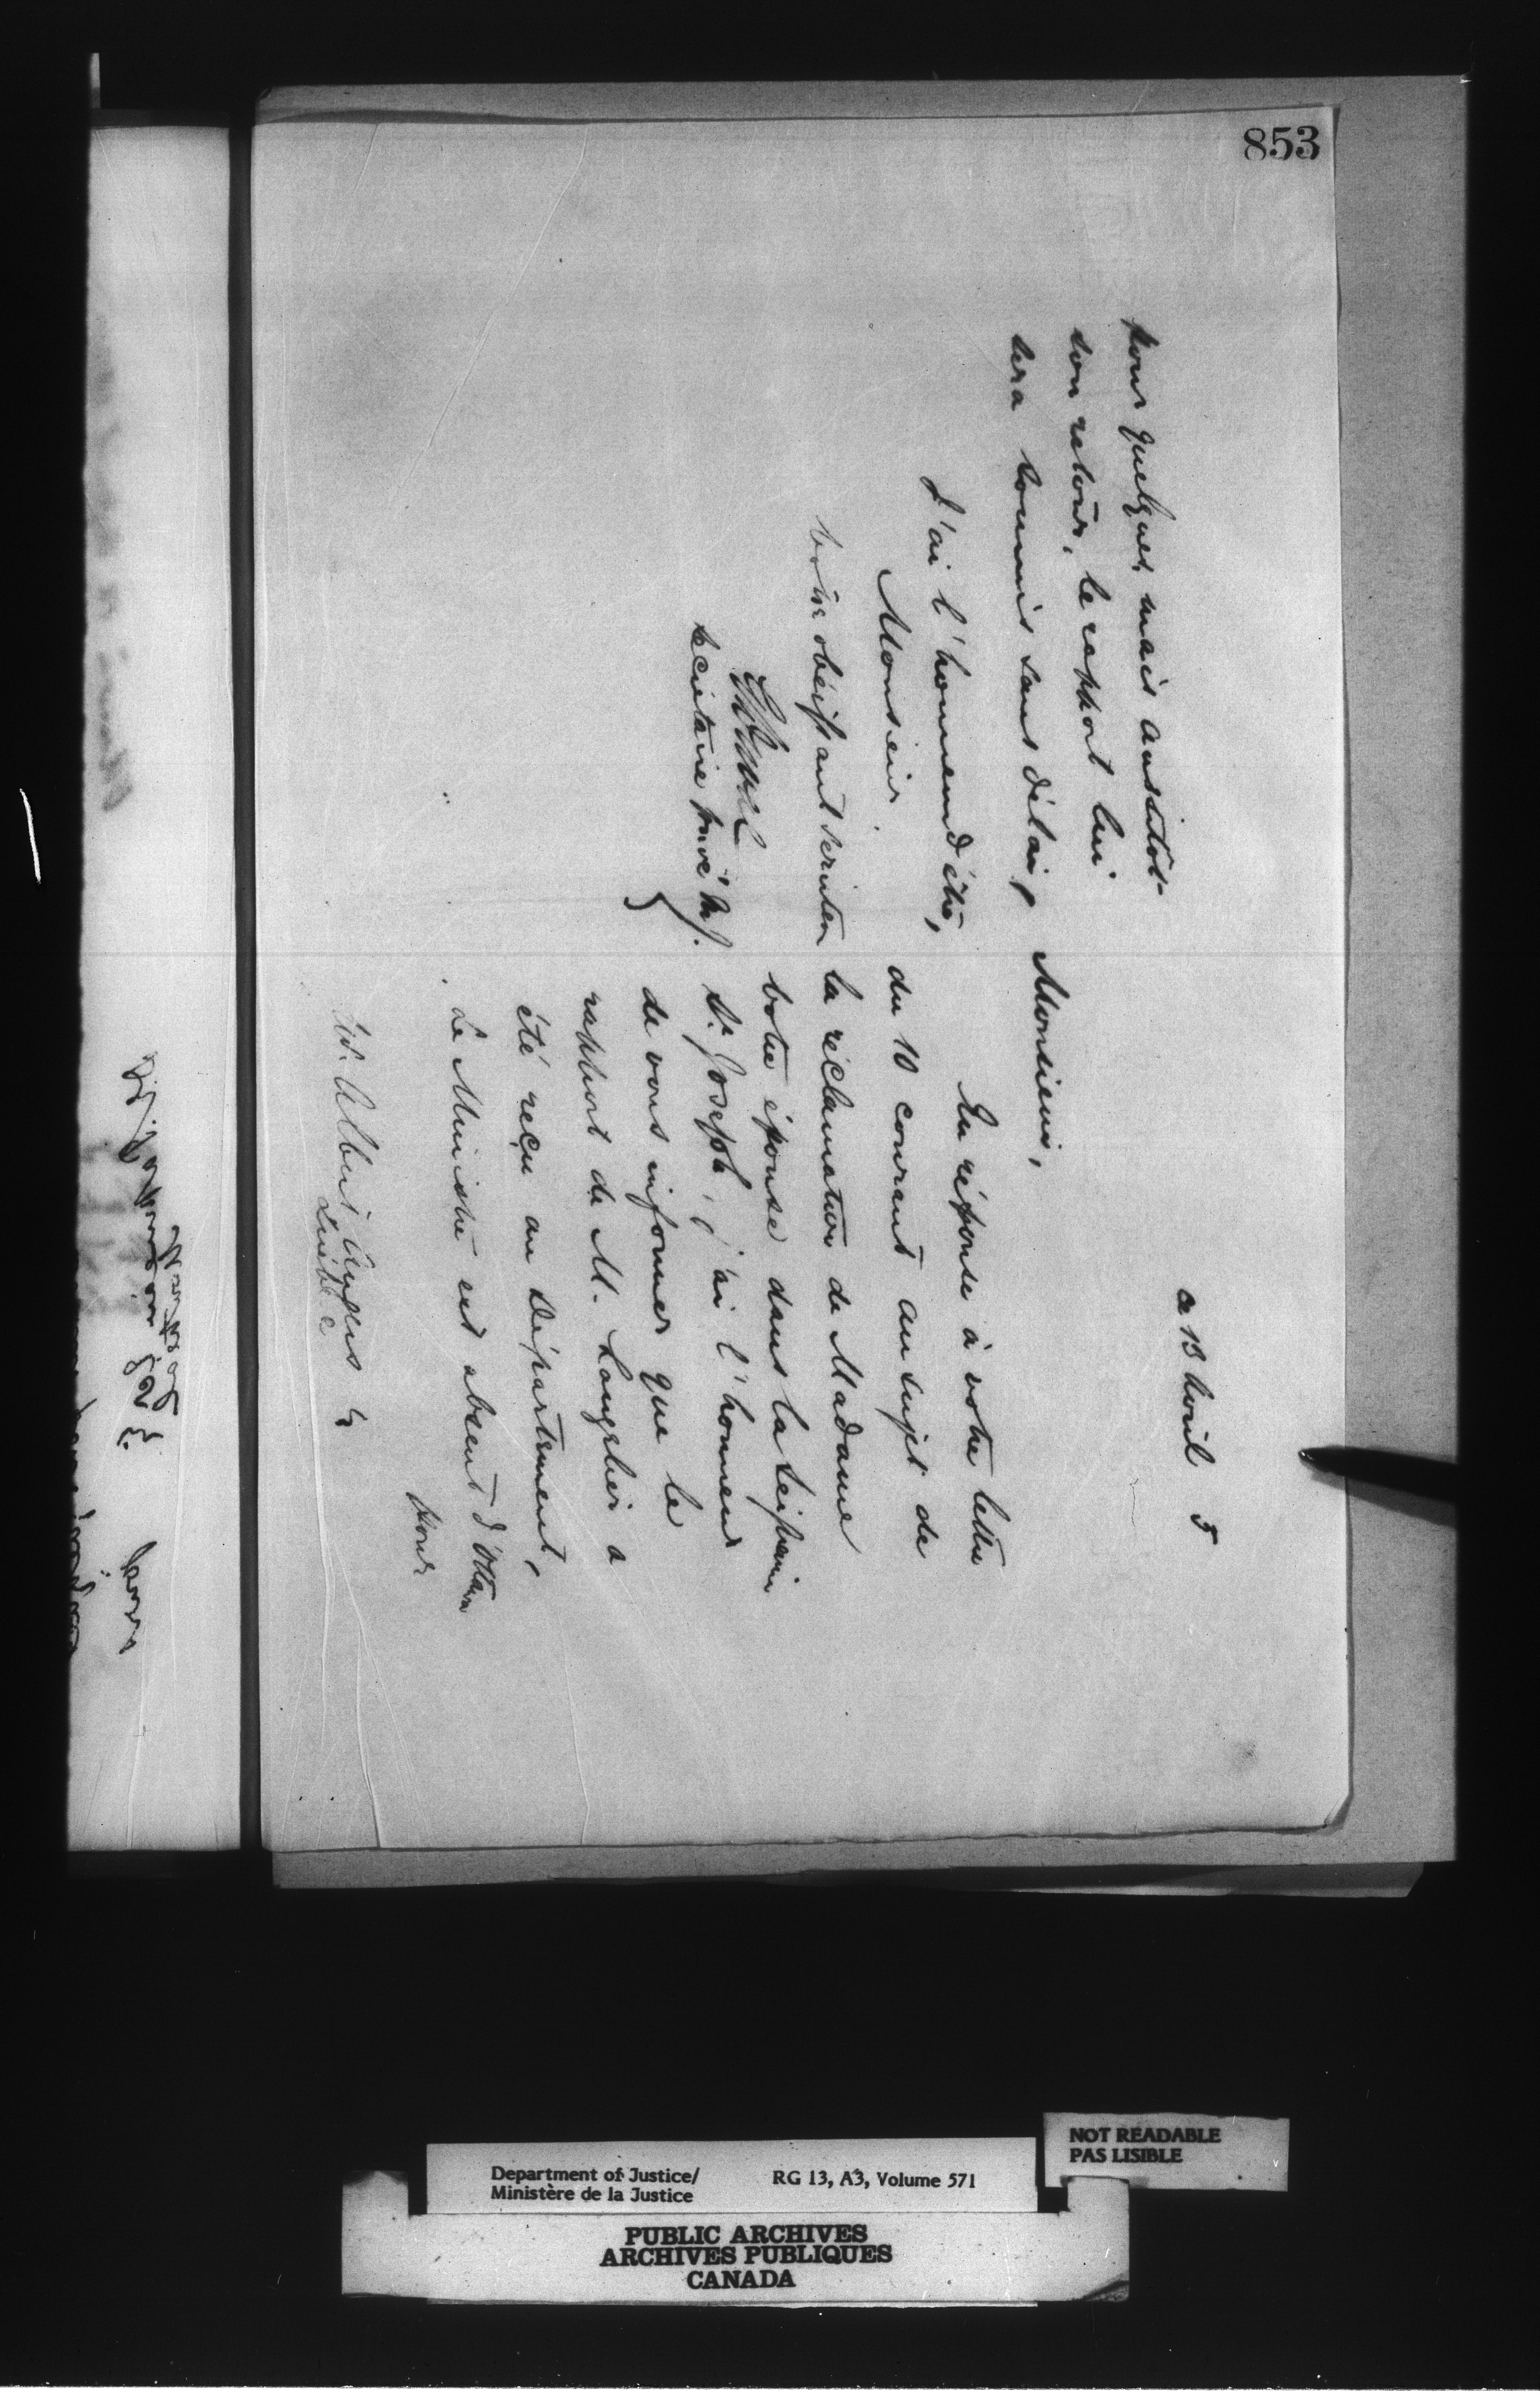 853
ce 13 Avril 5
Monsieur,
En réponse à votre lettre
du 10 courant au sujet de
la réclamation de Madame
votre épouse dans la Seigneurie
St. Joseph, j'ai l'honneur
de vous informer que le
rapport de M. Langelier a
été reçu au Département,
Le Ministre est absent d'Ottawa
pour
Albert
Québec
pour quelques mais aussitôt
son retour, le rapport lui
sera soumis sans délai,
J'ai l'honneur d'être,
Monsieur
votre obéissant serviteur
Secrétaire privé
Department of Justice/
Ministère de la Justice
RG 13, A3, Volume 571
NOT READABLE
PAS LISIBLE
PUBLIC ARCHIVES
ARCHIVES PUBLIQUES
CANADA